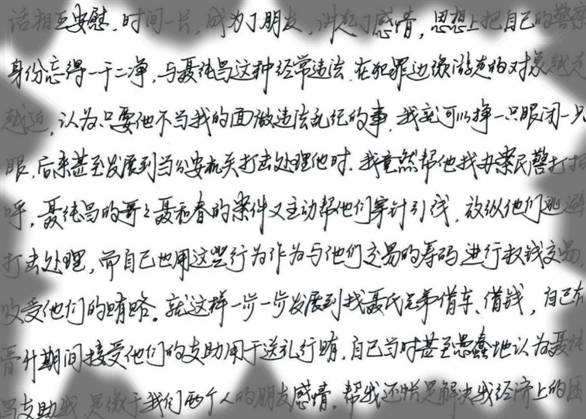 话相互安慰，时间一长，成为了朋友，讲起了感情，思想上把自己的警察
身份忘得一干二净，与聂纯昌这种经常违法、在犯罪边缘游走的对象越走
越近，认为只要他不当我的面做违法乱纪的事，我就可以睁一只眼闭一只
眼，后来甚至发展到当公安机关打击处理他时，我竟然帮他找办案民警打招
呼，聂纯昌的哥哥聂和春的案件又主动帮他们牵计引线，放纵他们逃避
打击处理，而自己也用这些行为作为与他们交易的筹码进行权钱交易，
收受他们的贿赂。就这样一步一步发展到找聂氏兄弟借车、借钱，自己在
晋升期间接受他们的支助用于送礼行贿，自己当时甚至愚蠢地认为聂纯
昌支助我，是缘于我们两个人的朋友感情，帮我还账是解决我经济上的困